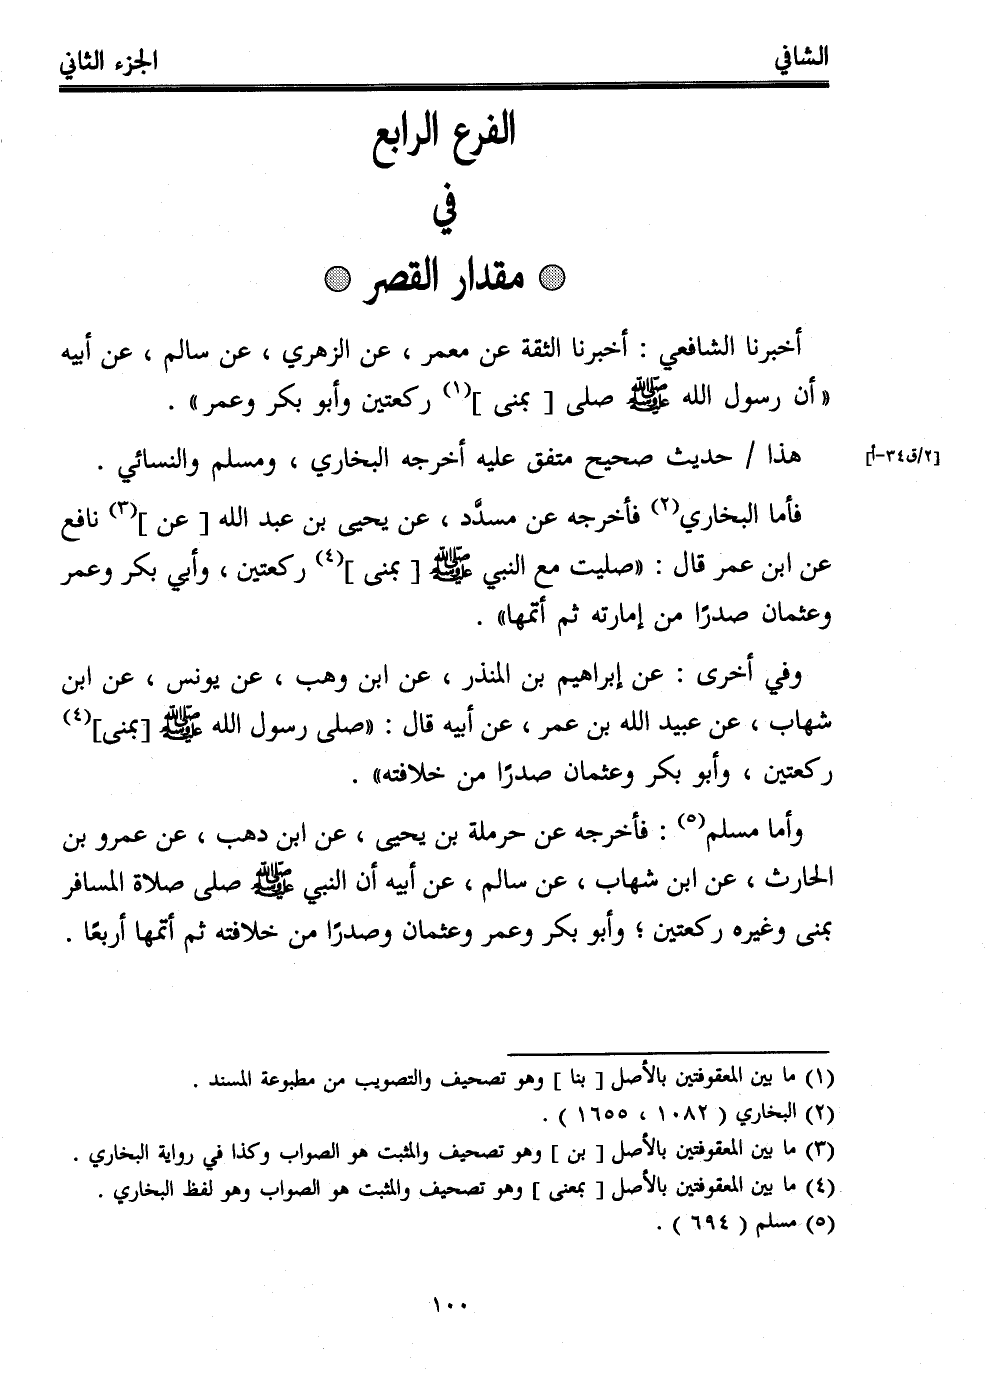 الشافي
الجزء الثاني
الفرع الرابع
في
مقدار القصر
أخبرنا الشافعي : أخبرنا الثقة عن معمر ، عن الزهري ، عن سالم ، عن أبيه
«أن رسول الله ﷺ صلى [ بمنى ](١) ركعتين وأبو بكر وعمر» .
هذا / حديث صحيح متفق عليه أخرجه البخاري ، ومسلم والنسائي .
[٢/ق٣٤-أ]
فأما البخاري(٢) فأخرجه عن مسدَّد ، عن يحيى بن عبد الله [ عن ](٣) نافع
عن ابن عمر قال : «صليت مع النبي ﷺ [ بمنى ](٤) ركعتين ، وأبي بكر وعمر
وعثمان صدرًا من إمارته ثم أتمّها» .
وفي أخرى : عن إبراهيم بن المنذر ، عن ابن وهب ، عن يونس ، عن ابن
شهاب ، عن عبيد الله بن عمر ، عن أبيه قال : «صلى رسول الله ﷺ [بمنى](٤)
ركعتين ، وأبو بكر وعثمان صدرًا من خلافته» .
وأما مسلم(٥) : فأخرجه عن حرملة بن يحيى ، عن ابن دهب ، عن عمرو بن
الحارث ، عن ابن شهاب ، عن سالم ، عن أبيه أن النبي ﷺ صلى صلاة المسافر
بمنى وغيره ركعتين ؛ وأبو بكر وعمر وعثمان وصدرًا من خلافته ثم أتمّها أربعًا .
(١) ما بين المعقوفتين بالأصل [ بنا ] وهو تصحيف والتصويب من مطبوعة المسند .
(٢) البخاري ( ١٠٨٢ ، ١٦٥٥ ) .
(٣) ما بين المعقوفتين بالأصل [ بن ] وهو تصحيف والمثبت هو الصواب وكذا في رواية البخاري .
(٤) ما بين المعقوفتين بالأصل [ بمعنى ] وهو تصحيف والمثبت هو الصواب وهو لفظ البخاري .
(٥) مسلم ( ٦٩٤ ) .
١٠٠